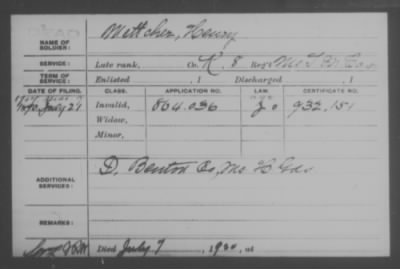 DEAD
NAME OF SOLDIER: Mettcher, Henry
SERVICE: Late rank, Co. K, 8 Reg't Mo
TERM OF SERVICE: Enlisted , 1 Discharged , 1
DATE OF FILING. CLASS. APPLICATION NO. LAW. CERTIFICATE NO.
July 27 Invalid, 864.036 932.151
Widow,
Minor,
ADDITIONAL SERVICES: D, Benton Co, Mo H Gds
REMARKS:
Died July 7, 1920, at